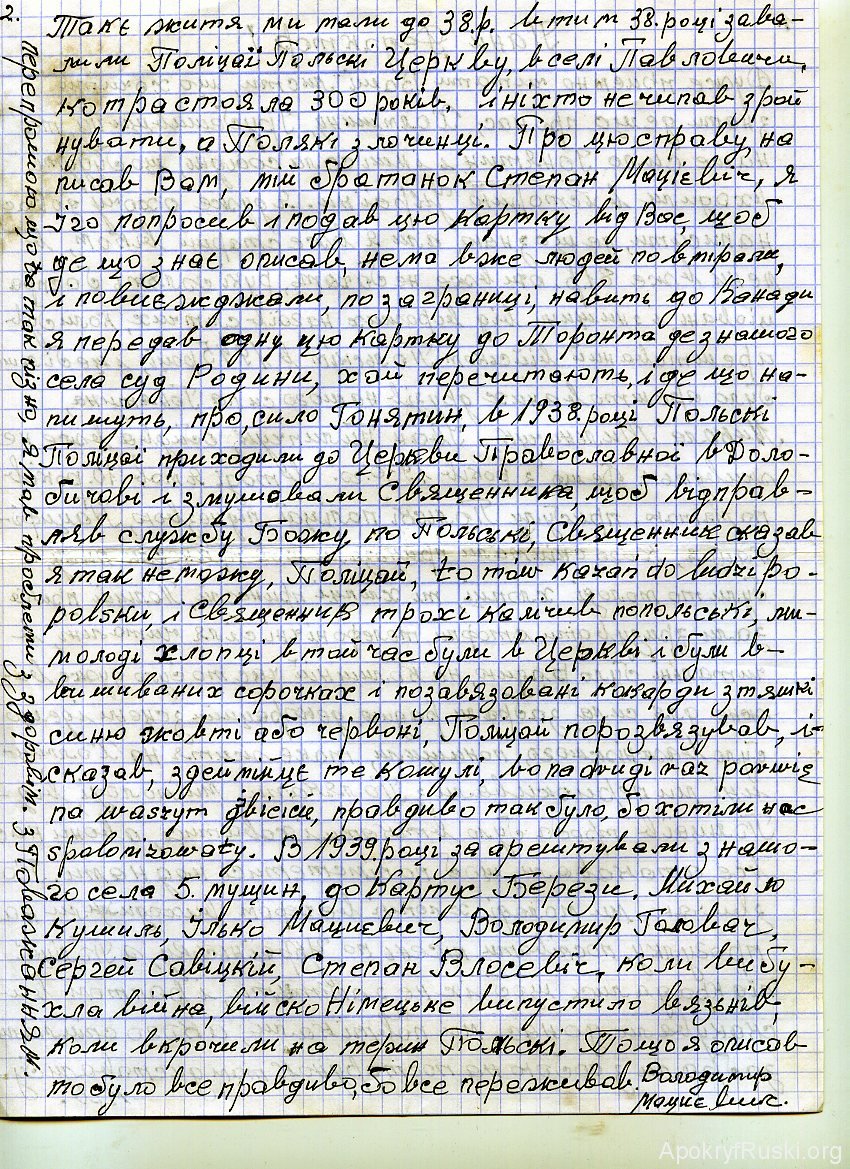 2.
Такє житя, ми мали до 38.р. в тим 38.році зава-
лили Поліцаї Польскі Церкву, в селі Павловичи,
котра стояла 300 років, і ніхто не чипав зрой
нувати, а Полякі злочинці. Про цю справу, на
писав Вам, мій братанок Степан Мацієвич, я
його попросив і подав цю картку від Вас, щоб
де що знає описав, нема вже людей повмірали,
і повиєжджали, по заграниці, навить до Канади
я передав одну цю картку до Торонта де з нашого
села суд Родини, хай перечитають, і де що на-
пишуть, про, сило Гонятин, в 1938.році Польскі
Поліцаї приходили до Церкви Православної в Доло-
бичові і змушовали Священника, щоб відправ-
ляв службу Божу по Польскі, Священник сказав
я так не можу, Поліцай, to mów kazań do ludzi po-
polsku, і Священник трохі калічив попольські, ми-
молоді хлопці в той час були в Церкві і були в-
вишиваних сорочках і позавязовані кокарди з тяшкі
синю жовті або червоні, Поліцай порозвязував, і-
сказав, здеймійце те кошулі, bo na drugi raz powwię
na waszym żwicicu, правдиво так було, бо хотіли нас
spolonizowaty. В 1939.році заарештували з нашо-
го села 5. мущин, до Картус Берези. Михайло
Кушиль, Ілько Мациєвич, Володимир Головач,
Сергей Савіцкій, Степан Влосевіч, коли вибу-
хла війна, військо Німецьке випустило вязьнів,
коли вкрочили на терин Польскі. То що я описав
то було все правдиво, бо все переживав. Володимир
Мациєвич.
перепрошою що та так пізно, я мав проблеми з здоровім. З Поважанням.
ApokryfRuski.org